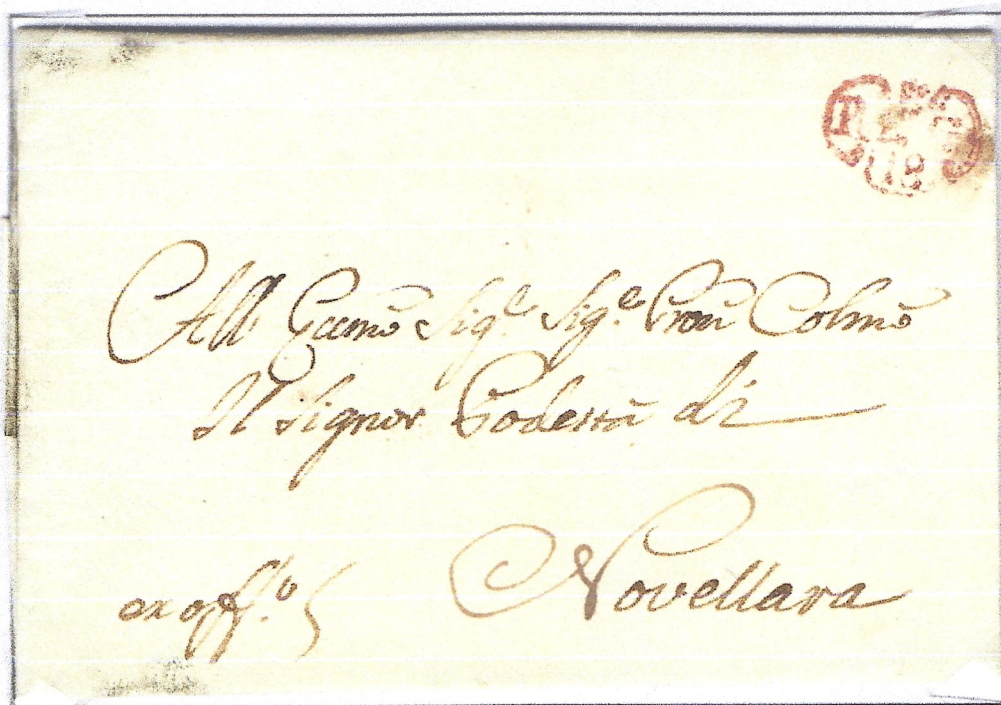 All' Eccmo Sigr. Sige. Pron Colmo
Il Signor Podestà di
Novellara
ex offo.